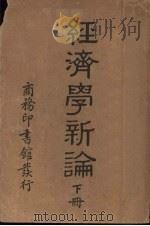 經濟學新論
下冊
商務印書館發行
www.sowodu.com